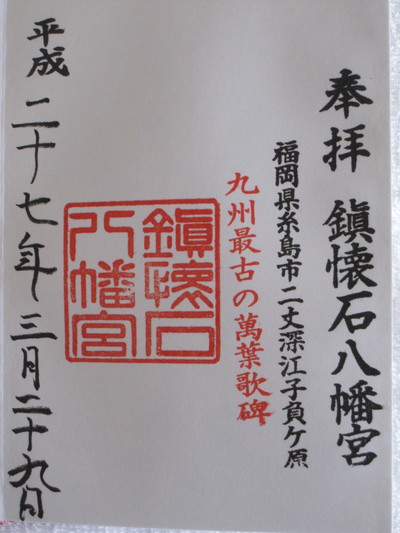 奉拝 鎮懐石八幡宮
福岡県糸島市二丈深江子負ケ原
九州最古の萬葉歌碑
鎮懐石
八幡宮
平成二十七年三月二十九日